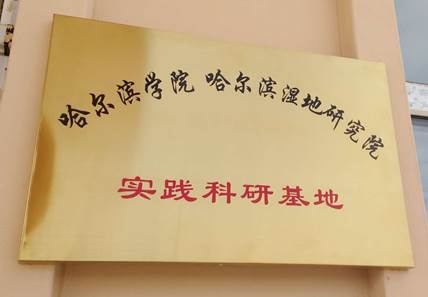 哈尔滨学院 哈尔滨湿地研究院
实践科研基地